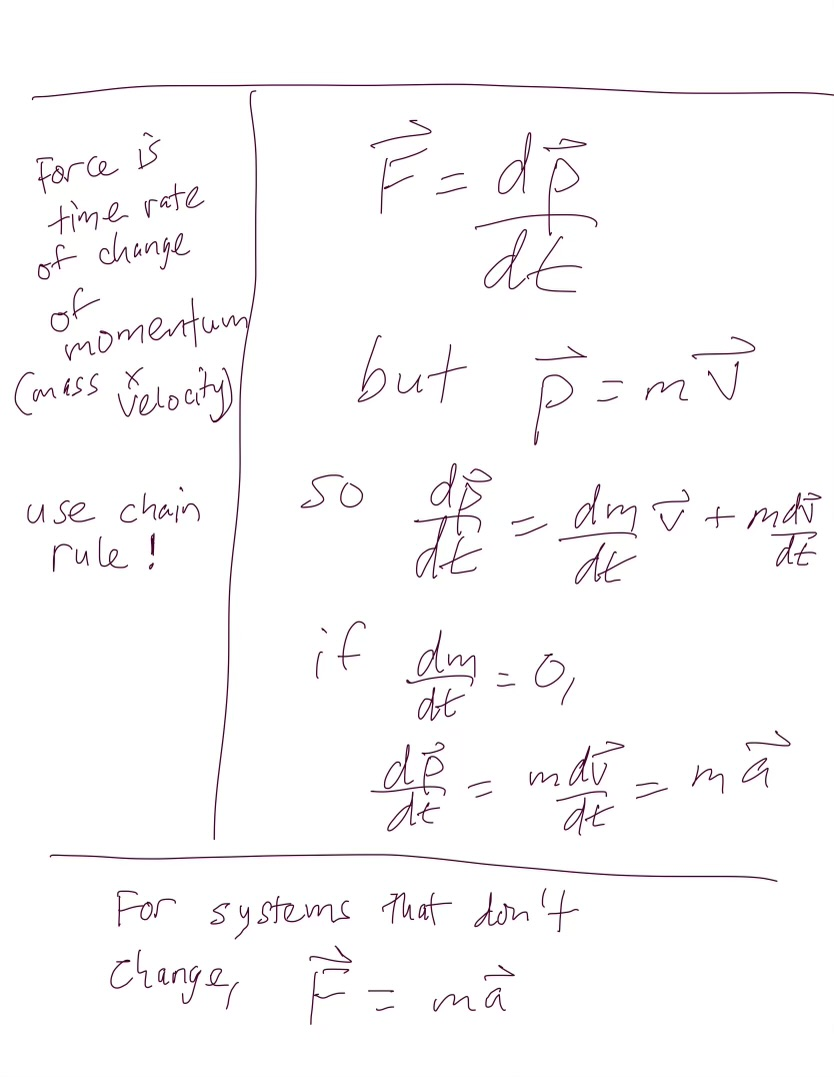 Force is
time rate
of change
of
momentum
(mass x
velocity)
use chain
rule!
F⃗ = dp⃗/dt
but p⃗ = mv⃗
so dp⃗/dt = dm/dt v⃗ + mdv⃗/dt
if dm/dt = 0,
dp⃗/dt = mdv⃗/dt = ma⃗
For systems that don't
change, F⃗ = ma⃗